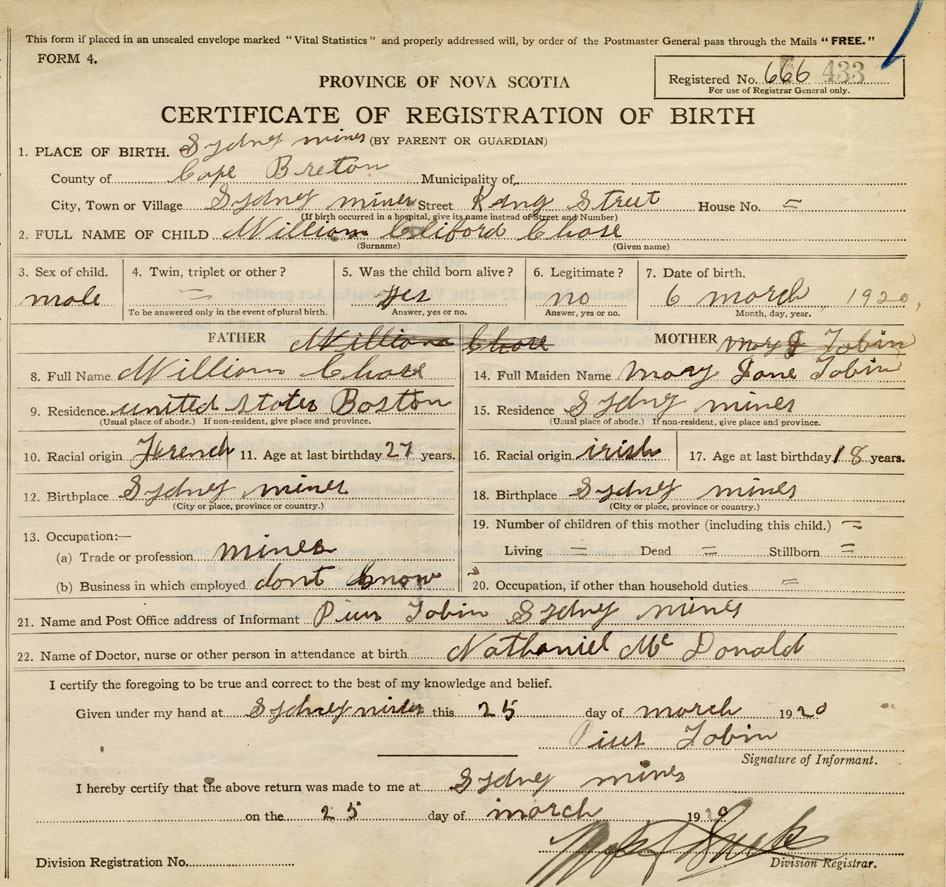 This form if placed in an unsealed envelope marked "Vital Statistics" and properly addressed will, by order of the Postmaster General pass through the Mails "FREE."
FORM 4.
PROVINCE OF NOVA SCOTIA
Registered No. 666 433
For use of Registrar General only.
CERTIFICATE OF REGISTRATION OF BIRTH
1. PLACE OF BIRTH. Sydney mines (BY PARENT OR GUARDIAN)
County of Cape Breton Municipality of
City, Town or Village Sydney mines Street King Street House No. =
(If birth occurred in a hospital, give its name instead of Street and Number)
2. FULL NAME OF CHILD William Cliford Chase
(Surname) (Given name)
3. Sex of child. 4. Twin, triplet or other? 5. Was the child born alive? 6. Legitimate? 7. Date of birth.
male = yes no 6 march 1920
To be answered only in the event of plural birth. Answer, yes or no. Answer, yes or no. Month, day, year.
FATHER William Chase MOTHER Mary J Tobin
8. Full Name William Chase 14. Full Maiden Name Mary Jane Tobin
9. Residence united states Boston 15. Residence Sydney mines
(Usual place of abode.) If non-resident, give place and province. (Usual place of abode.) If non-resident, give place and province.
10. Racial origin French 11. Age at last birthday 27 years. 16. Racial origin irish 17. Age at last birthday 18 years.
12. Birthplace Sydney mines 18. Birthplace Sydney mines
(City or place, province or country.) (City or place, province or country.)
13. Occupation:— 19. Number of children of this mother (including this child.) =
(a) Trade or profession Living = Dead = Stillborn =
(b) Business in which employed dont know 20. Occupation, if other than household duties. =
21. Name and Post Office address of Informant Pius Tobin Sydney mines
22. Name of Doctor, nurse or other person in attendance at birth Nathaniel Mc Donald
I certify the foregoing to be true and correct to the best of my knowledge and belief.
Given under my hand at Sydney mines this 25 day of march 1920
Pius Tobin
Signature of Informant.
I hereby certify that the above return was made to me at Sydney mines
on the 25 day of march 19
Division Registration No. Division Registrar.